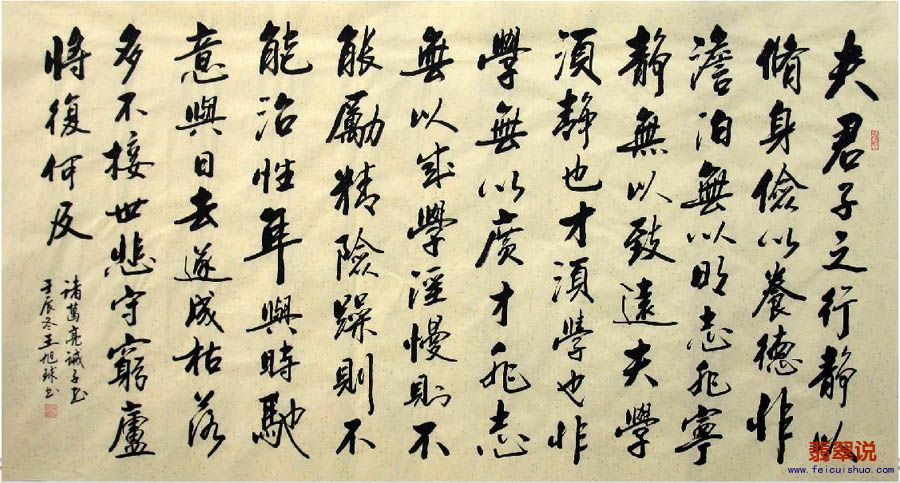 夫君子之行静以
脩身儉以養德非
澹泊無以明志非寧
静無以致遠夫學
須静也才須學也非
學無以廣才非志
無以成學淫慢則不
能勵精險躁則不
能治性年與時馳
意與日去遂成枯落
多不接世悲守窮廬
將復何及
諸葛亮誡子書
壬辰冬王旭球書
翡翠说
www.feicuishuo.com